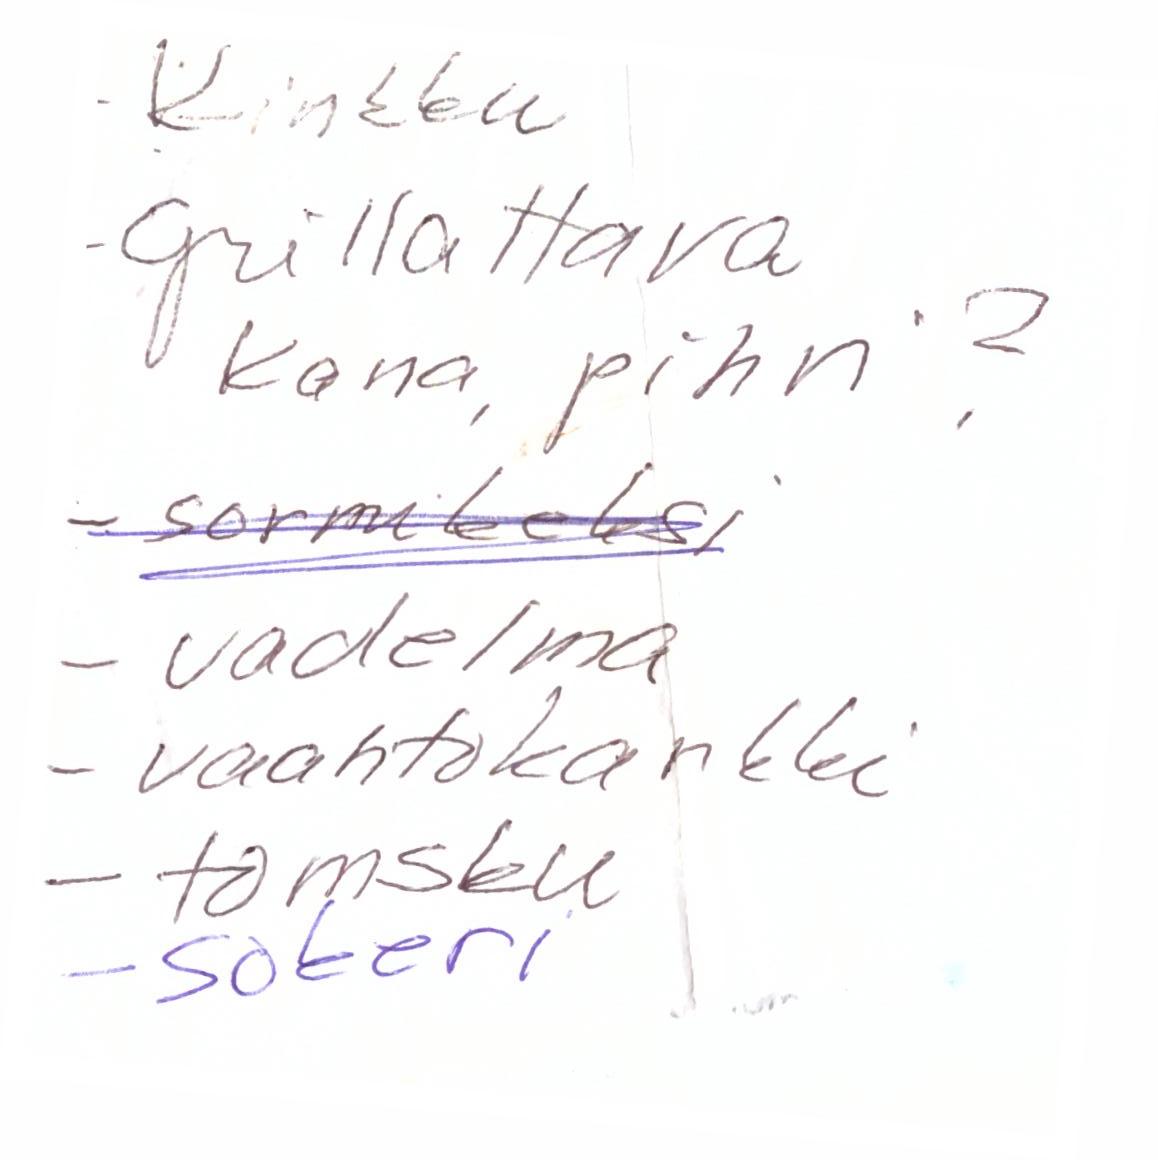 - Kinkku
- Grillattava
kana, pihvi ?
- sormikeksi
- vadelma
- vaahtokarkki
- tomsku
- sokeri